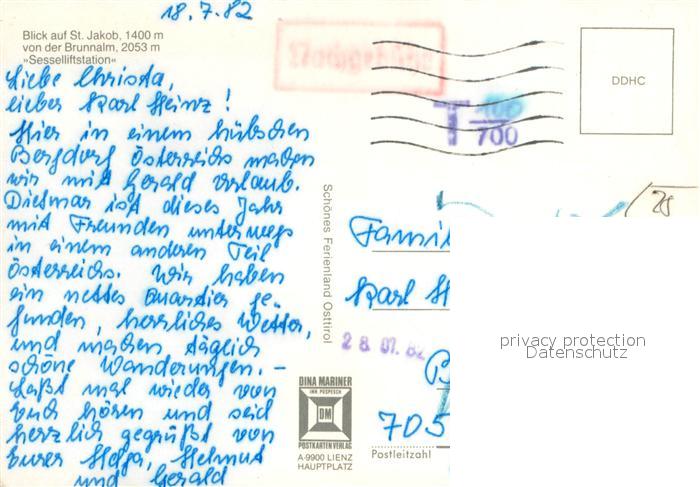 18.7.82
Blick auf St. Jakob, 1400 m
von der Brunnalm, 2053 m
»Sesselliftstation«
Liebe Christa,
lieber Karl Heinz!
Hier in einem hübschen
Bergdorf Österreichs machen
wir mit Gerald Urlaub.
Dietmar ist dieses Jahr
mit Freunden unterwegs
in einem anderen Teil
Österreichs. Wir haben
ein nettes Quartier ge-
funden, herrliches Wetter,
und machen täglich
schöne Wanderungen. –
Laßt mal wieder von
Euch hören und seid
herzlich gegrüßt von
Eurer Helga, Helmut
und Gerald
Nachgebühr
T 700
DDHC
Schönes Ferienland Osttirol
Famil
Karl H
28.07.82
B
705
Postleitzahl
DINA MARINER
INH POSPESCH
DM
POSTKARTENVERLAG
A-9900 LIENZ
HAUPTPLATZ
privacy protection
Datenschutz